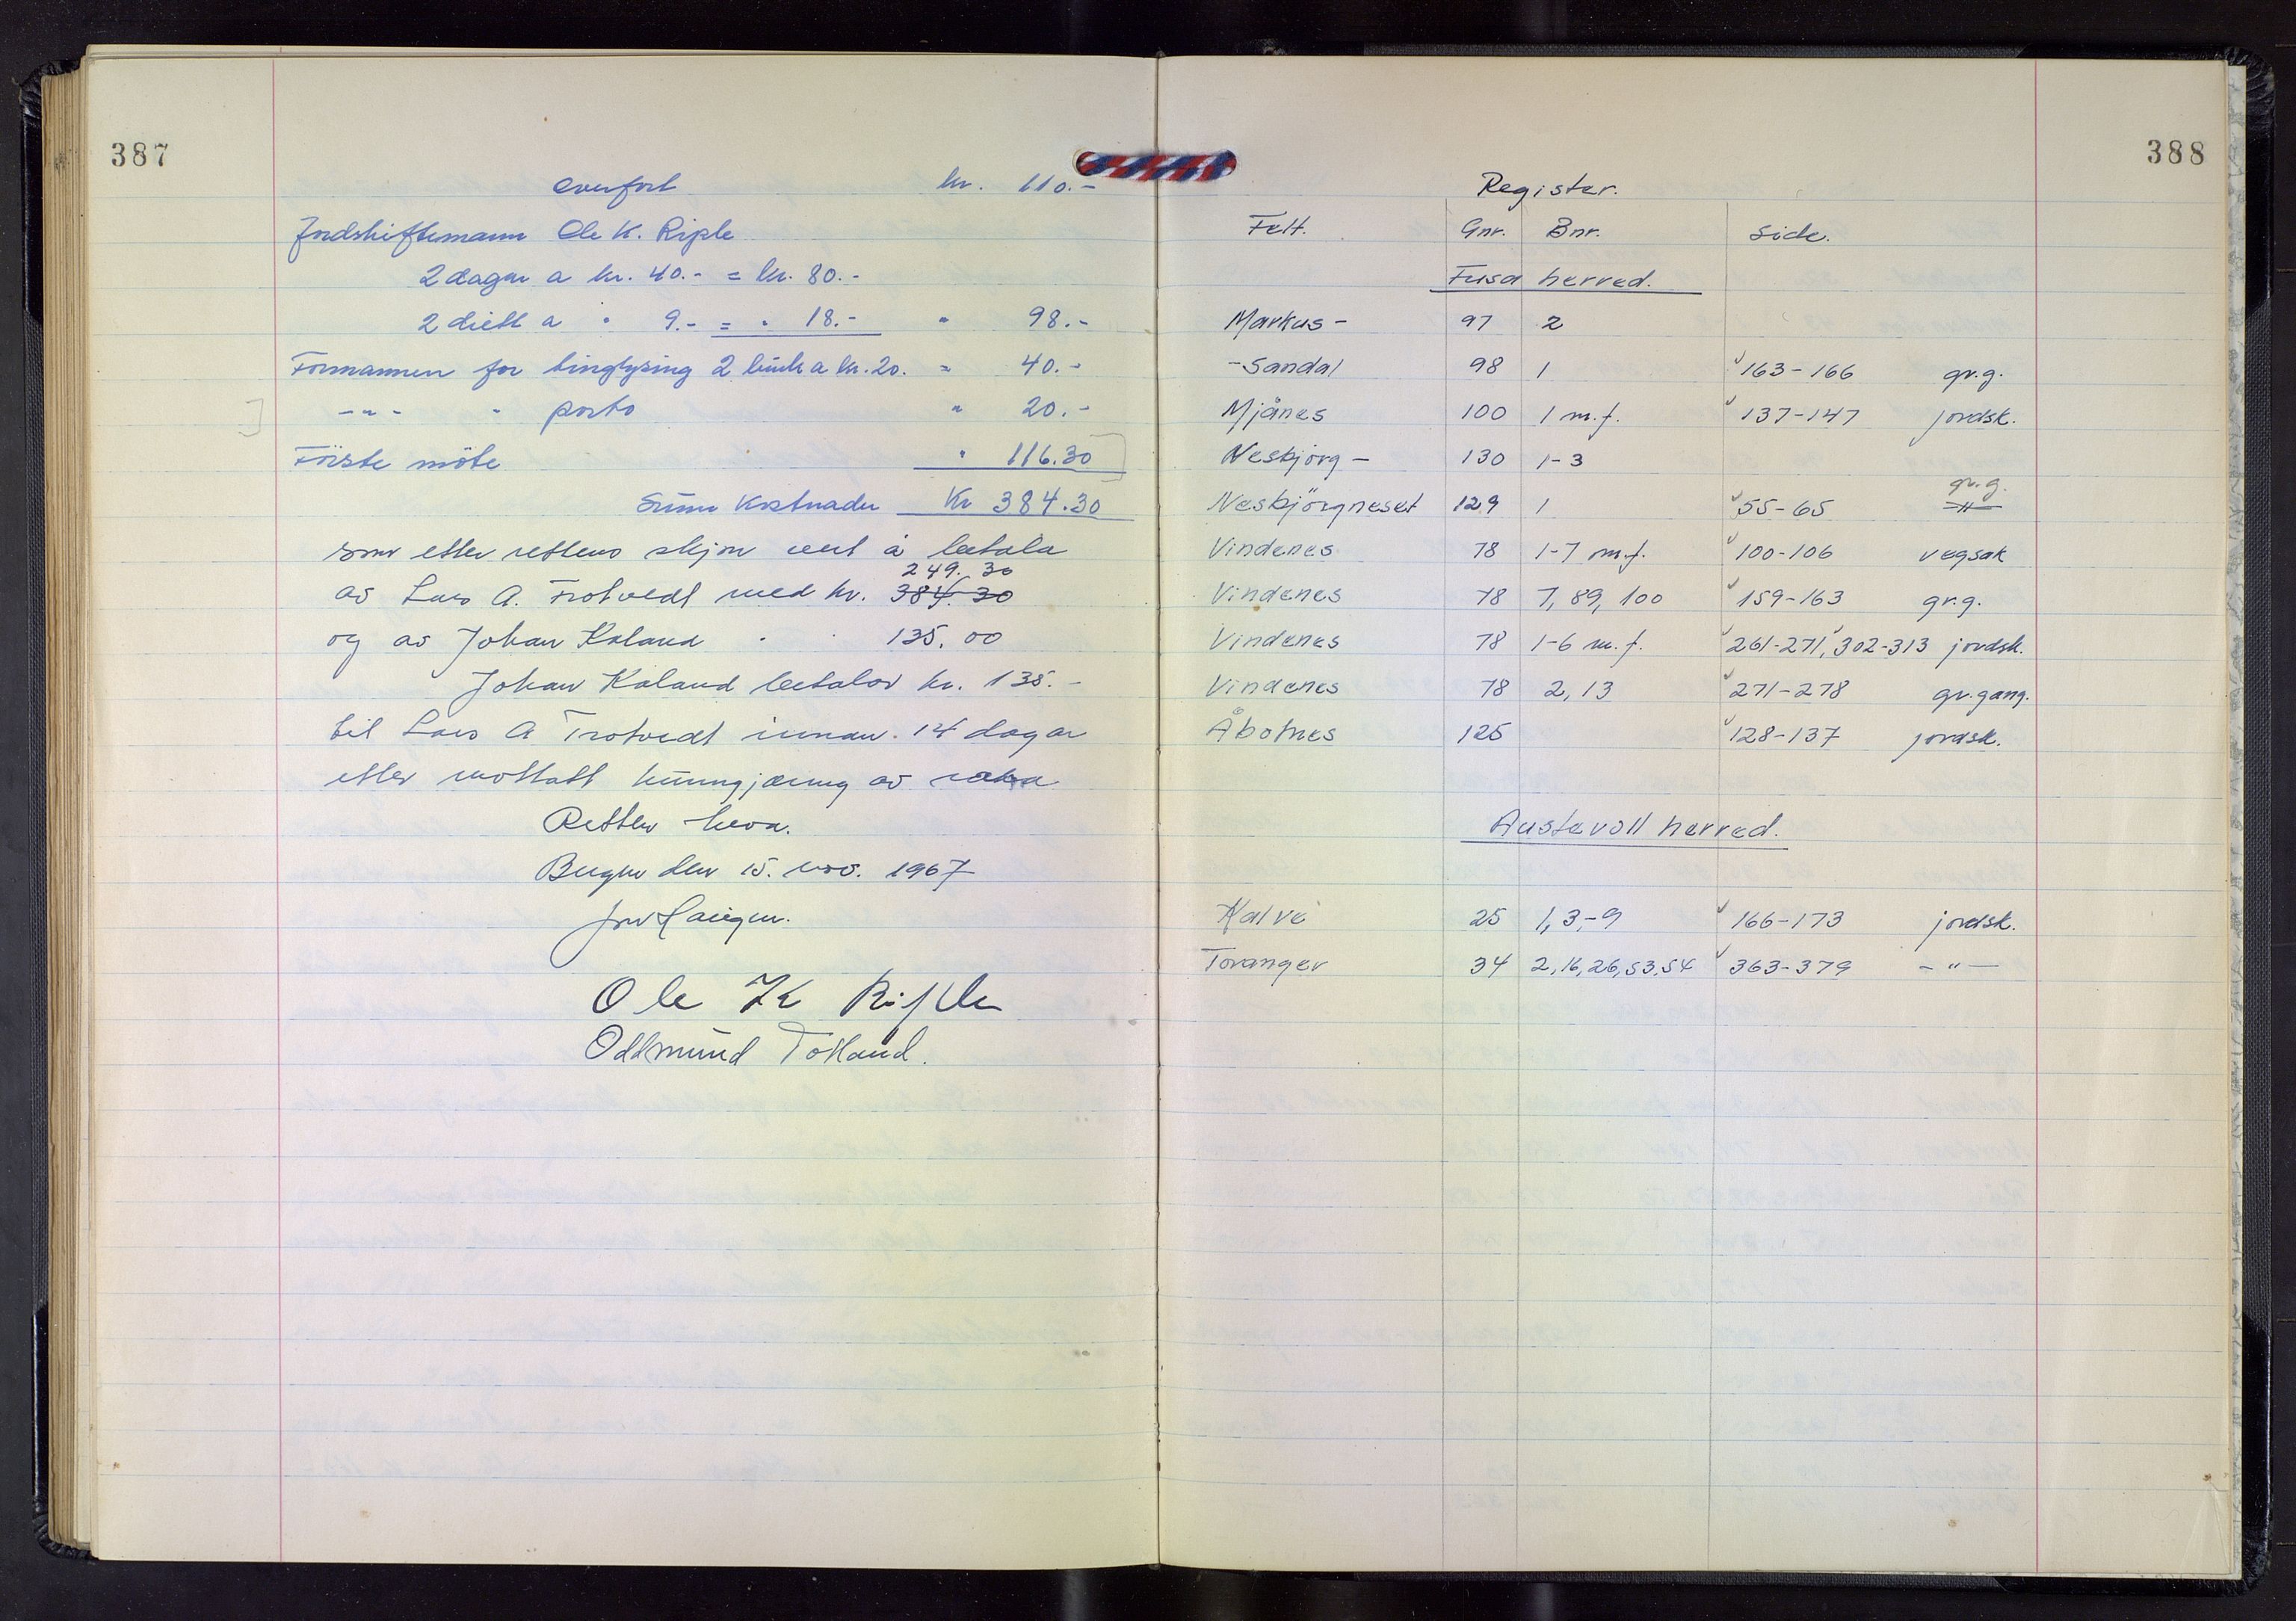 387
overfört kr. 110.-
Jordskiftemann Ole K. Riple
2 dagar a kr. 40.- = kr. 80.-
2 diett a " 9.- = " 18.- " 98.-
Formannen for tinglysing 2 bruk a kr. 20. = 40.-
-"- " porto " 20.-
Förste möte " 116.30
Sum kostnader Kr 384.30
som etter rettens skjön vert å betala
249.30
av Lars A. Trotvedt med kr. 384.30
og av Johan Kaland " " 135.00
Johan Kaland betalar kr. 135.-
til Lars A Trotvedt innan 14 dagar
etter mottatt kunngjæring av saka
Retten heva.
Bergen den 15. nov. 1967
Ole K Riple
Oddmund Tolland.
388
Register.
Felt. Gnr. Bnr. Side.
Fusa herred.
Markus- 97 2
-Sandal 98 1 163-166 gr.g.
Mjånes 100 1 m.f. 137-147 jordsk.
Nesbjörg- 130 1-3
gr.g.
Nesbjörgneset 129 1 55-65 -"-
Vindenes 78 1-7 m.f. 100-106 vegsak
Vindenes 78 7, 89, 100 159-163 gr.g.
Vindenes 78 1-6 m.f. 261-271, 302-313 jordsk.
Vindenes 78 2, 13 271-278 gr.gang.
Åbotnes 125 128-137 jordsk.
Austevoll herred.
Kalve 25 1, 3-9 166-173 jordsk.
Toranger 34 2, 16, 26, 53, 54 363-379 -"-